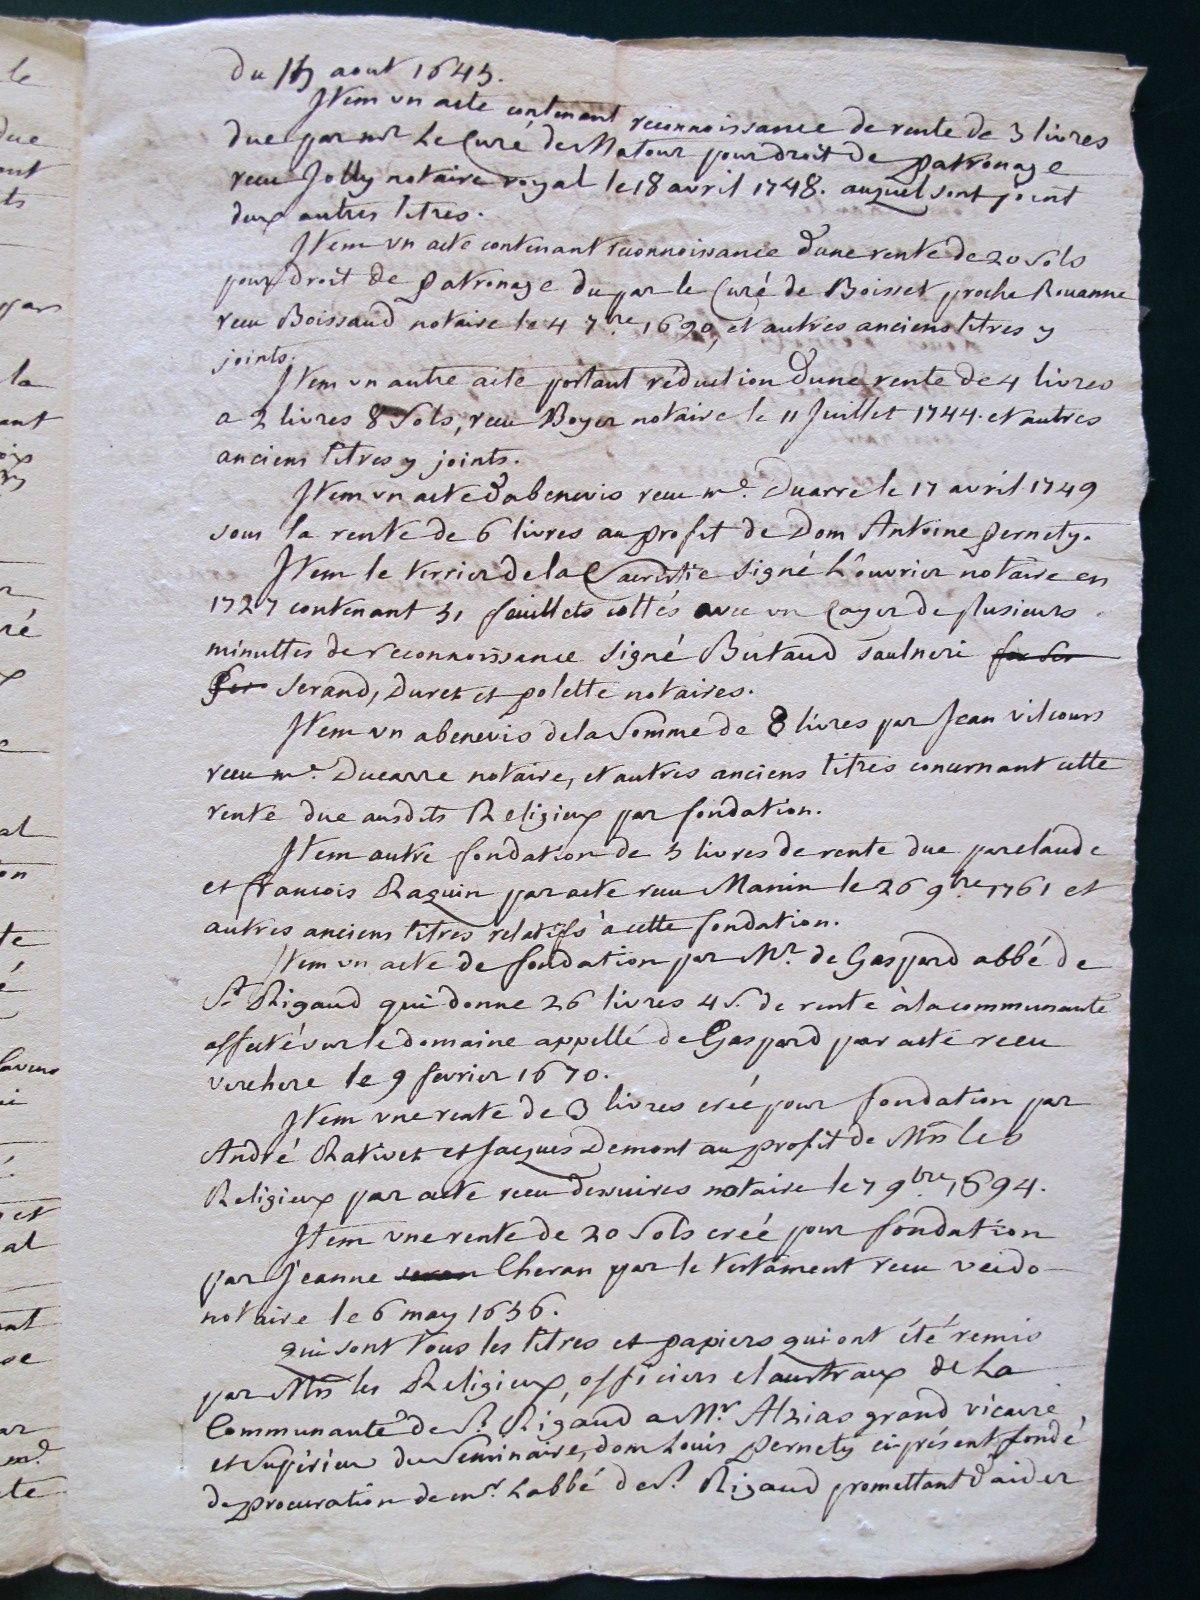 du 15 aout 1645.
Item un acte contenant reconnoissance de rente de 3 livres
due par mr Le Curé de Matour pour droit de patronage
receu Jolly notaire royal le 18 avril 1748. auquel sont joint
deux autres titres.
Item un acte contenant reconnoissance d'une rente de 20 sols
pour droit de patronage du par le Curé de Boisset proche Rouanne
receu Boissaud notaire le 4 7.re 1690, et autres anciens titres y
joints.
Item un autre acte portant réduction d'une rente de 4 livres
a 2 livres 8 sols, receu Boyer notaire le 11 Juillet 1744. et autres
anciens titres y joints.
Item un acte d'abenevis receu me. Duarre le 17 avril 1749
sous la rente de 6 livres au profit de Dom Antoine pernety.
Item le terrier de la Sacristie signé L'ouvrier notaire en
1727 contenant 51 feuillets cottés avec un Cayer de plusieurs
minuttes de reconnoissance signé Butaud saulnerie
serand, Duret et polette notaires.
Item un abenevis de la somme de 8 livres par Jean vilcours
receu me. Ducarre notaire, et autres anciens titres concernant cette
rente due ausdits Religieux par fondation.
Item autre fondation de 5 livres de rente due par claude
et francois Raquin par acte receu Manin le 26 9.bre 1761 et
autres anciens titres relatifs a cette fondation.
Item un acte de fondation par Mr. de Gaspard abbé de
St. Rigaud qui donne 26 livres 4 s. de rente à la communaute
affecté sur le domaine appellé de Gaspard par acte receu
verchere le 9 fevrier 1670.
Item une rente de 3 livres créé pour fondation par
André Ravivet et Jacques Demont au profit de Mrs les
Religieux par acte receu notaire le 7 9.bre 1694.
Item une rente de 20 sols créé pour fondation
par Jeanne Cheran par le testament receu veido
notaire le 6 may 1636.
qui sont tous les titres et papiers qui ont été remis
par Mrs les Religieux, officiers claustraux de La
Communauté de St. Rigaud a Mr. Alzias grand vicaire
et superieur du Seminaire, dom Louis pernety ci présent fondé
de procuration de mr. Labbé de St. Rigaud promettant d'aider